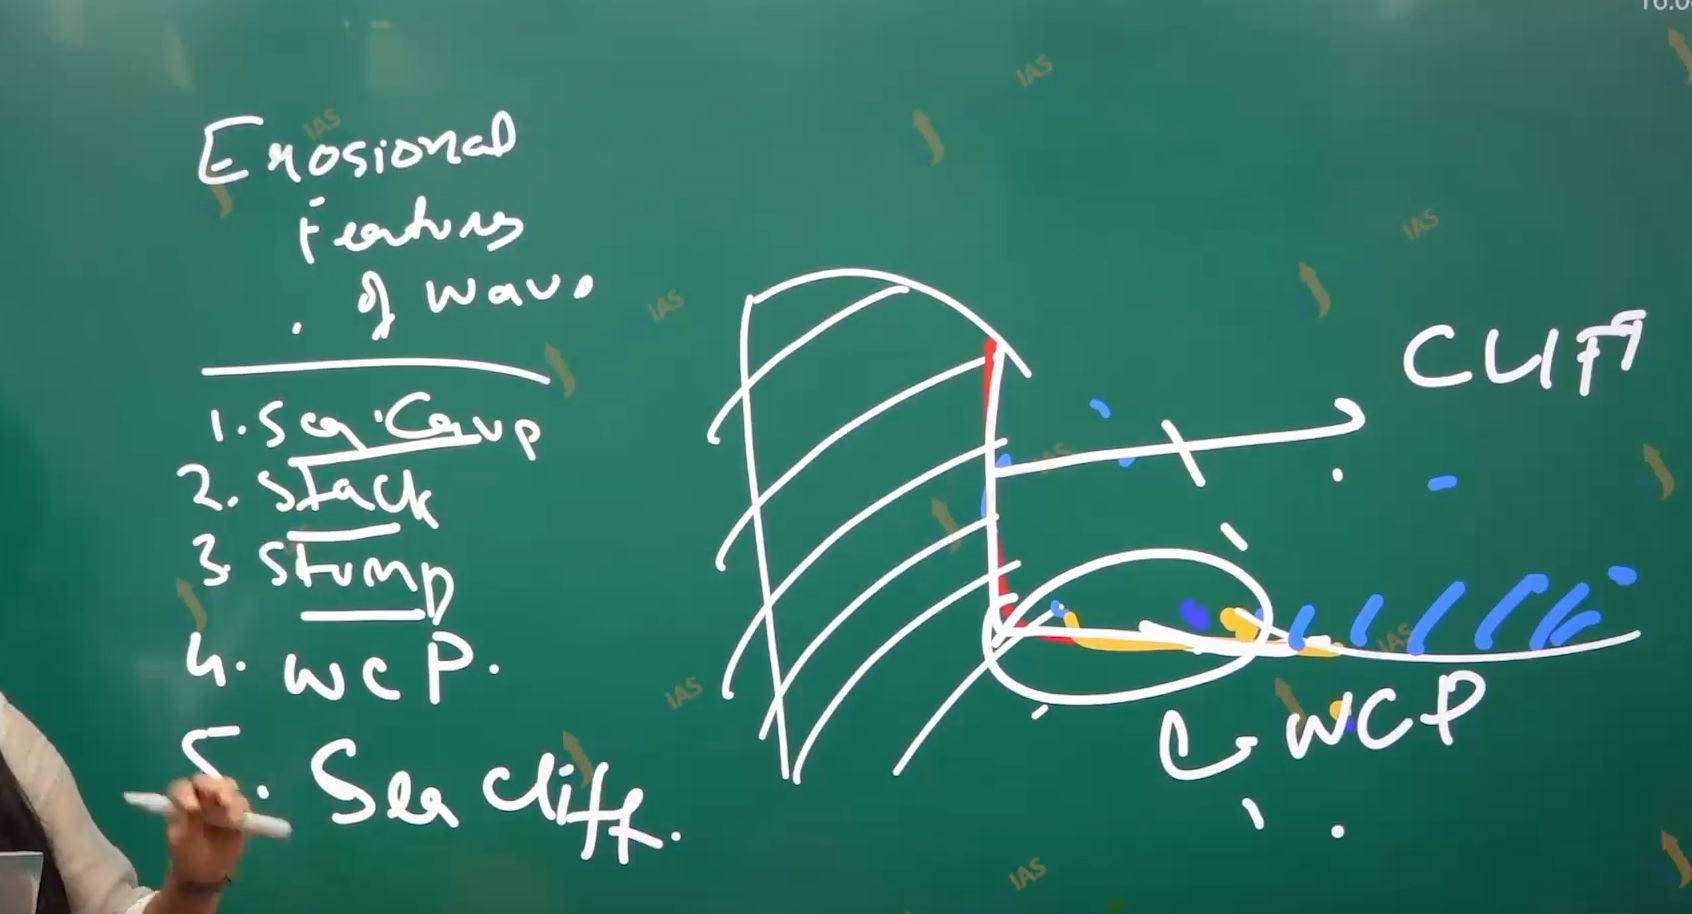 Erosional
Features
of wave
1. Sea Cave
2. Stack
3. Stump
4. WCP.
5. Sea Cliff.
Cliff
WCP
IAS
IAS
IAS
IAS
IAS
IAS
IAS
IAS